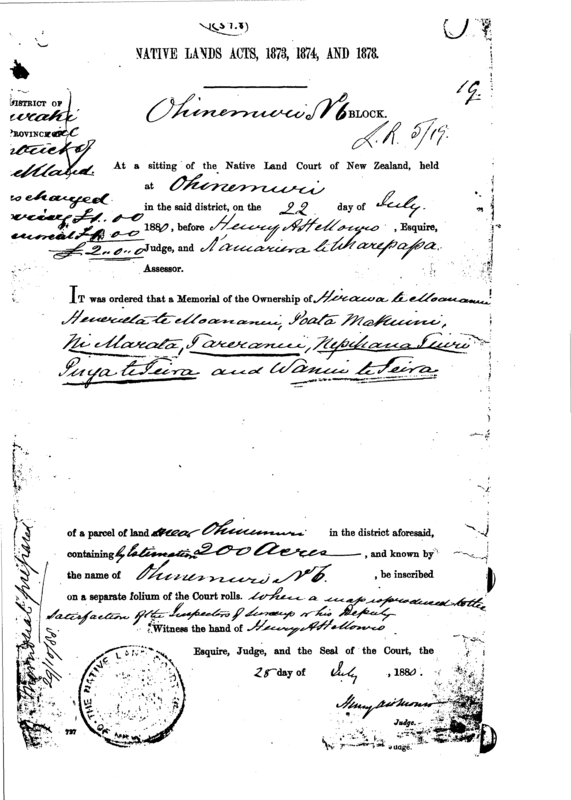 (S 7.8)
NATIVE LANDS ACTS, 1873, 1874, AND 1878.
19.
DISTRICT OF
PROVINCE
Ohinemuri No 6 BLOCK.
L.R. 5/19
At a sitting of the Native Land Court of New Zealand, held
at Ohinemuri
in the said district, on the 22 day of July.
1880, before Henry A H Monro, Esquire,
Judge, and
Assessor.
charged
£1.00
memorial £1.00
£2.0.0
IT was ordered that a Memorial of the Ownership of Hirawa te Moananui
te Moananui, Poata
Ni Marata, Tareranui,
te Teira and te Teira
of a parcel of land near Ohinemuri in the district aforesaid,
containing by Estimation 200 Acres, and known by
the name of Ohinemuri No 6, be inscribed
on a separate folium of the Court rolls. when a map is produced to the
Satisfaction of the Inspector of Surveys or his Deputy
Witness the hand of Henry A H Monro
Esquire, Judge, and the Seal of the Court, the
28 day of July, 1880.
Henry A H Monro
Judge.
Judge.
Memorial prepared
29/10/80
THE NATIVE LAND COURT OF NEW
727